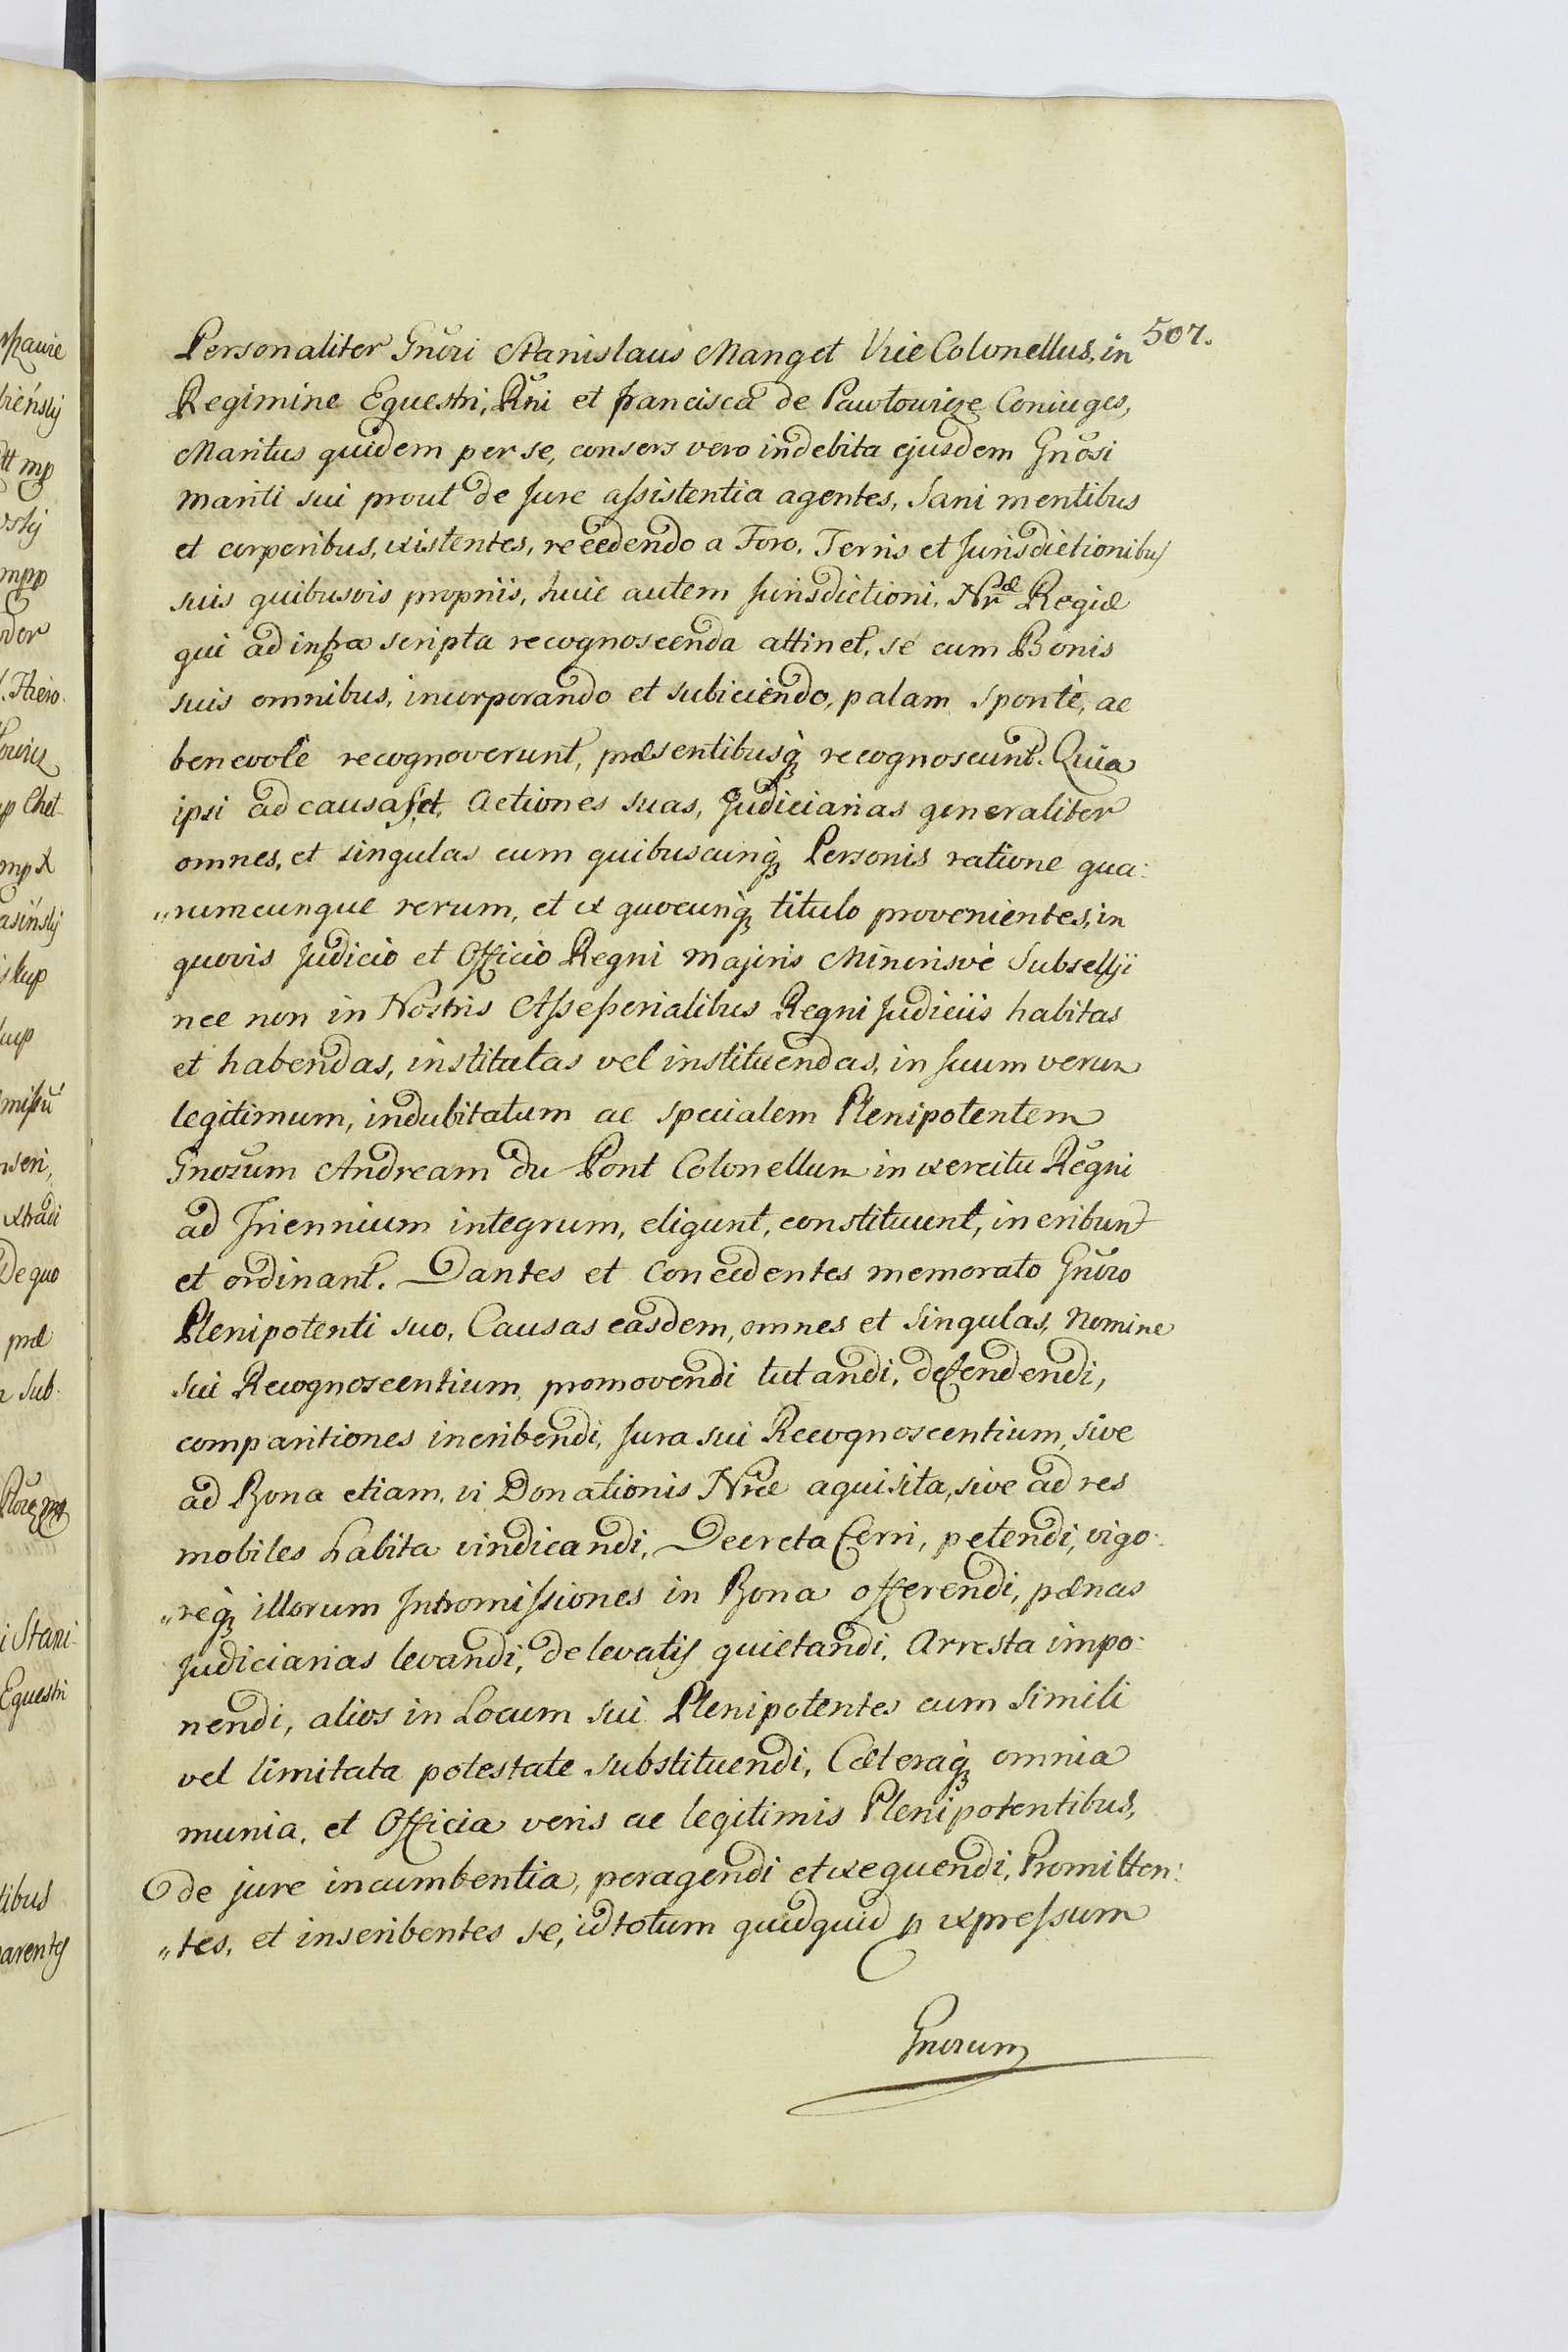 507.
Personaliter Gnõri Stanislaus Manget Vice Colonellus, in
Regimine Equestri, Rñi et francisca de Pawłowicze Coniuges,
Maritus quidem per se, consors vero in debita ejusdem Gnõsi
mariti sui prout de Jure assistentia agentes, Sani mentibus
et corporibus, existentes, recedendo a Foro, Terris et Jurisdictionibus
suis quibusvis propriis, huic autem Jurisdictioni, Nræ Regiæ
qui ad infra scripta recognoscenda attinet, se cum Bonis
suis omnibus, incorporando et subiciendo, palam sponte, ac
benevole recognoverunt, præsentibusq̃ recognoscunt. Quia
ipsi ad causas et Actiones suas, Judiciarias generaliter
omnes, et singulas cum quibuscunq̃ Personis ratione qua:
„rumcunque rerum, et ex quocunq̃ titulo provenientes, in
quovis Judicio et Officio Regni majoris Minorisve Subsellii
nec non in Nostris Assessorialibus Regni Judiciis habitas
et habendas, institutas vel instituendas, in suum verum
legitimum, indubitatum ac specialem Plenipotentem
Gnosum Andream du Pont Colonellum in exercitu Regni
ad Triennium integrum, eligunt, constituunt, incribunt
et ordinant. Dantes et Concedentes memorato Gnõro
Plenipotenti suo, Causas easdem, omnes et Singulas, Nomine
sui Recognoscentium promovendi tutandi, defendendi,
comparitiones incribendi, Jura sui Recognoscentium, sive
ad Bona etiam, vi Donationis Nræ aquisita, sive ad res
mobiles habita vindicandi, Decreta ferri, petendi, vigo:
„req̃ illorum Intromissiones in Bona offerendi, pænas
Judiciarias levandi, de levatis quietandi, Arresta impo:
nendi, alios in Locum sui Plenipotentes cum Simili
vel limitata potestate substituendi, Cæteraq̃ omnia
munia, et Officia veris ac legitimis Plenipotentibus,
de jure incumbentia, peragendi et exequendi, Promitten:
„tes, et inscribentes se, id totum quidquid p expressum
Gnorum